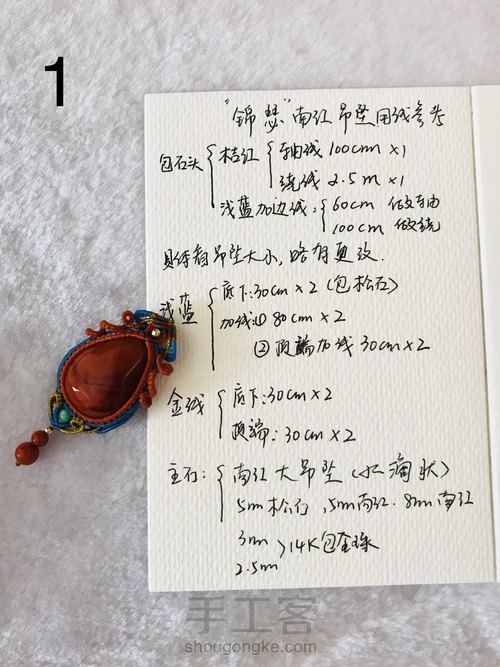 1
"锦瑟"南红吊坠用线参考
包石头 桔红 轴线 100cm x1
绕线 2.5m x1
浅蓝加边线: 60cm 做轴
100cm 做绕
具体看吊坠大小,略有更改.
浅蓝 底下:30cm x2 (包松石)
加线① 80cm x2
②顶端加线 30cm x2
金线 底下:30cm x2
顶端:30cm x2
主石: 南红大吊坠(水滴状)
5m松石,5m南红.8m南红
3m 14K包金珠
2.5m
手工客
shougongke.com